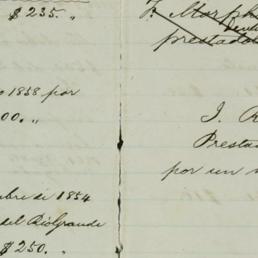 $235.„
o 1858 por
00.„
bre de 1854
del Rio Grande
$250.„
F. Morph
prestado
J. R
Presta
por un